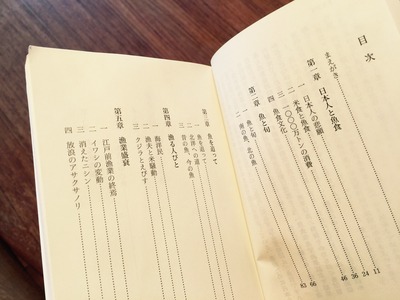 目次
まえがき
第一章 日本人と魚食
一 日本人の悲願 11
二 米食と魚食 24
三 一〇〇〇万トンの消費 36
四 魚食文化 46
第二章 魚と旬
一 魚と旬 66
二 南の魚、北の魚 83
三 昔の魚、今の魚
第三章 魚を追って
一 魚を追って
二 北洋への道
第四章 漁る人びと
一 海洋民
二 漁夫と米騒動
三 クジラとえびす
第五章 漁業盛衰
一 江戸前漁業の終焉
二 イワシの変動
三 消えたニシン
四 放浪のアサクサノリ